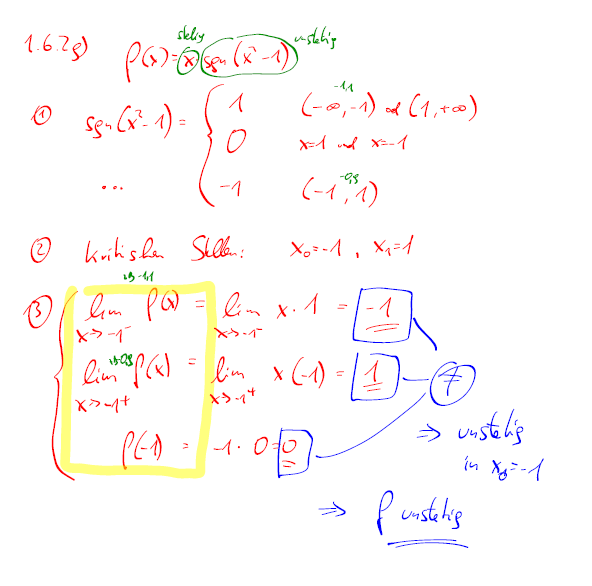 1.6.2g) f(x) = x sgn(x²-1)
stetig unstetig
① sgn(x²-1) = { 1 (-∞,-1) und (1,+∞)
-1,1
0 x=1 und x=-1
... -1 (-1,1)
-0,9
② Kritischen Stellen: x₀=-1 , x₁=1
zB -1,1
③ lim x→-1⁻ f(x) = lim x→-1⁻ x·1 = -1
zB -0,9
lim x→-1⁺ f(x) = lim x→-1⁺ x(-1) = 1 ≠
f(-1) = -1·0=0
⇒ unstetig
in x₀=-1
⇒ f unstetig